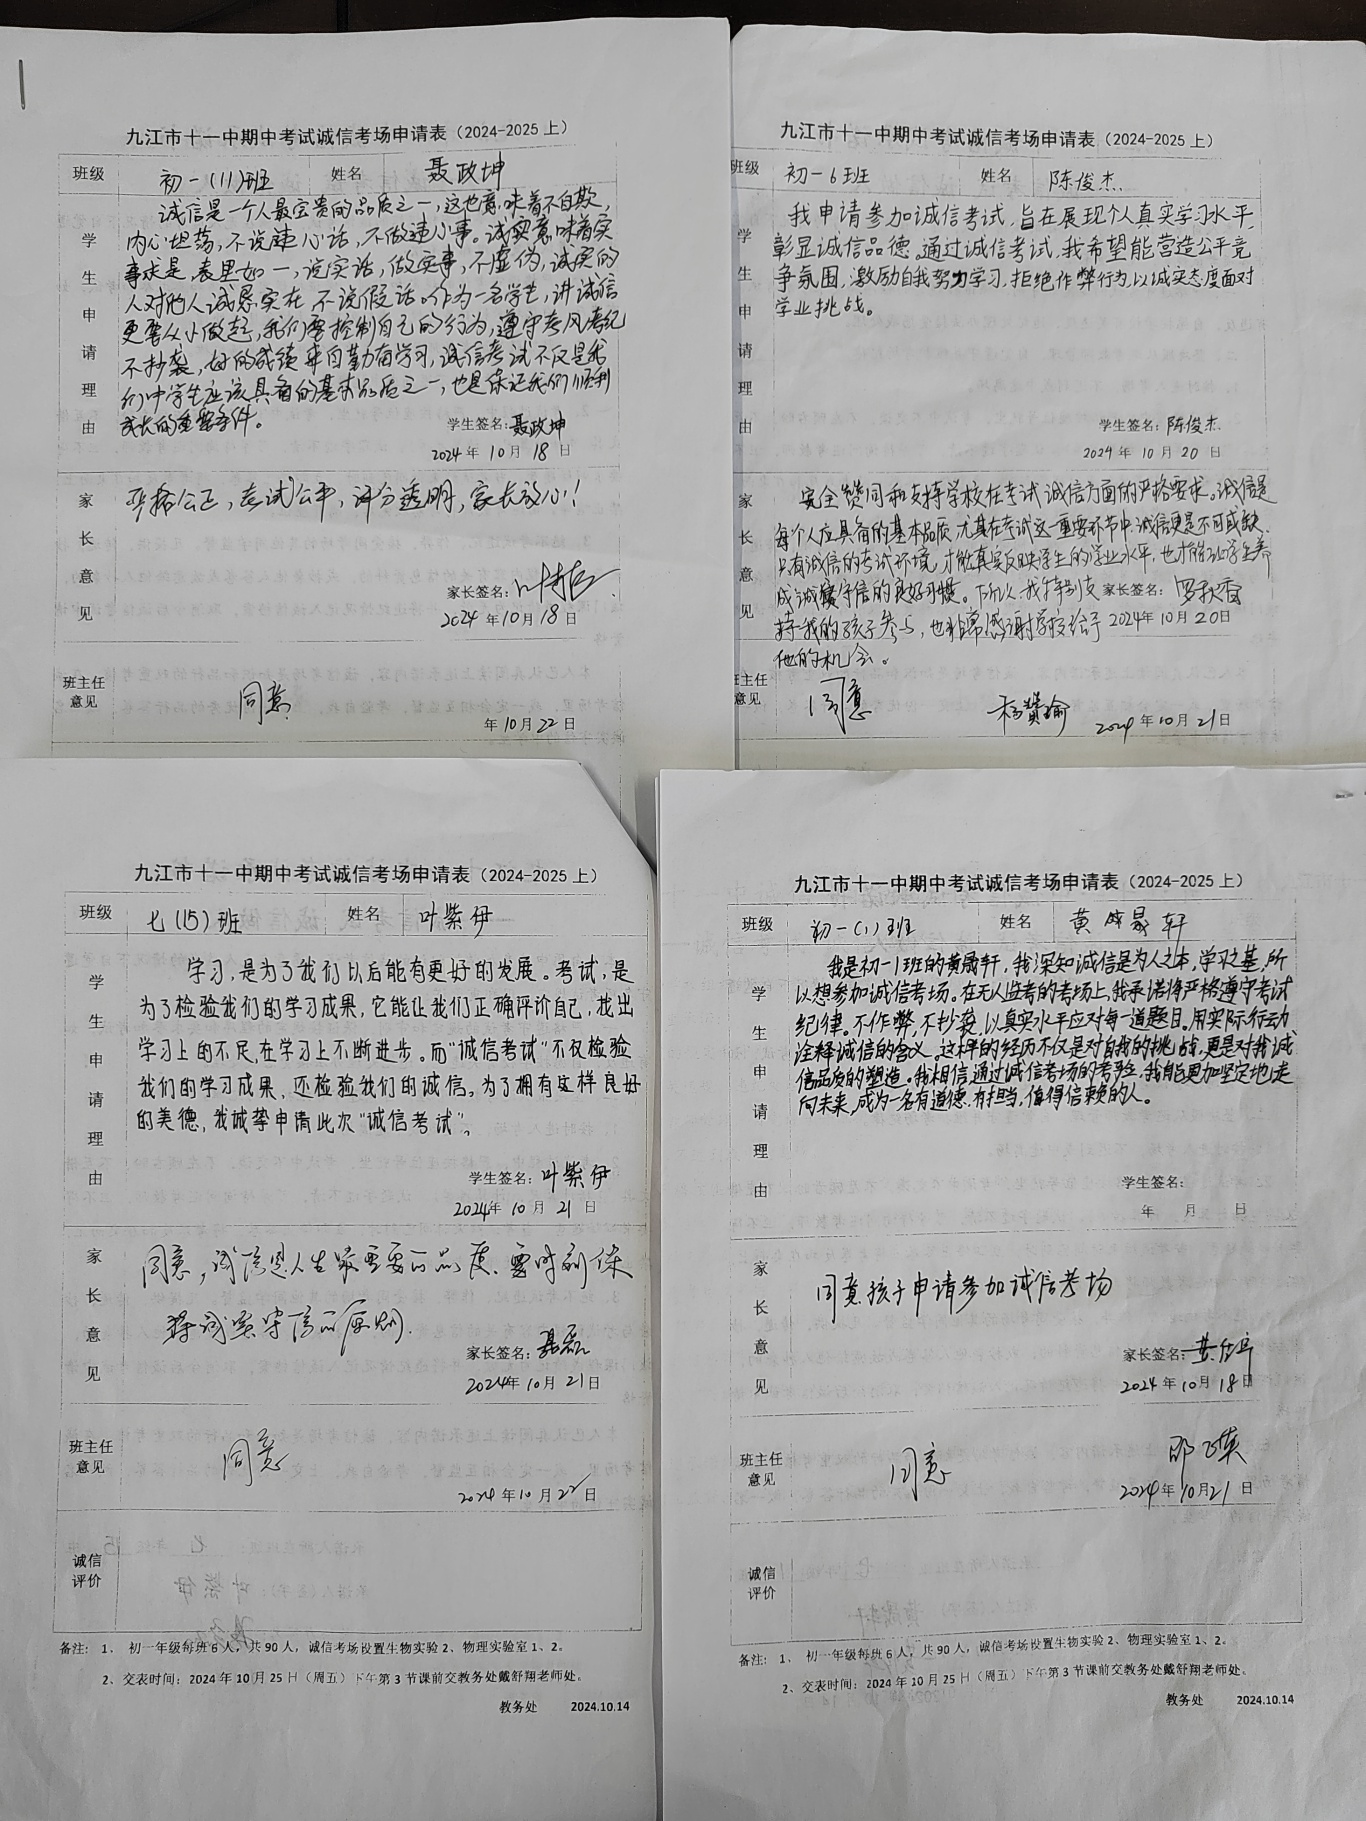 九江市十一中期中考试诚信考场申请表（2024-2025 上）
班级 初一（11）班 姓名 聂政坤
学生申请理由
诚信是一个人最宝贵的品质之一，这也意味着不自欺，
内心坦荡，不说违心话，不做违心事。诚实意味着实
事求是，表里如一，说实话，做实事，不虚伪，诚实的
人对他人诚恳实在，不说假话。作为一名学生，讲诚信
更要从小做起，我们要控制自己的行为，遵守考风考纪
不抄袭，好的成绩来自勤奋学习，诚信考试不仅是我
们中学生应该具备的基本品质之一，也是保证我们顺利
成长的重要条件。
学生签名：聂政坤
2024 年 10 月 18 日
家长意见
严格公正，考试公平，评分透明，家长放心！
家长签名：
2024 年 10 月 18 日
班主任意见
同意
年 10 月 22 日
九江市十一中期中考试诚信考场申请表（2024-2025 上）
班级 初一6班 姓名 陈俊杰
学生申请理由
我申请参加诚信考试，旨在展现个人真实学习水平，
彰显诚信品德。通过诚信考试，我希望能营造公平竞
争氛围，激励自我努力学习，拒绝作弊行为，以诚实态度面对
学业挑战。
学生签名：陈俊杰
2024 年 10 月 20 日
家长意见
完全赞同和支持学校在考试诚信方面做的严格要求。诚信是
每个人应具备的基本品质，尤其在考试这一重要环节中，诚信更是不可或缺，
只有诚信的考试环境，才能真实反映学生的学业水平，也才能让学生养
成诚实守信的良好习惯。所以我特别支
持我的孩子参与，也非常感谢学校给予
他的机会。
家长签名：罗秋香
2024 年 10 月 20 日
班主任意见
同意 杨赞瑜
2024 年 10 月 21 日
九江市十一中期中考试诚信考场申请表（2024-2025 上）
班级 七（15）班 姓名 叶紫伊
学生申请理由
学习，是为了我们以后能有更好的发展。考试，是
为了检验我们的学习成果，它能让我们正确评价自己，找出
学习上的不足，在学习上不断进步。而“诚信考试”不仅检验
我们的学习成果，还检验我们的诚信。为了拥有这样良好
的美德，我诚挚申请此次“诚信考试”。
学生签名：叶紫伊
2024 年 10 月 21 日
家长意见
同意，诚信是人生最重要的品质，要时刻保
持诚实守信的原则．
家长签名：聂磊
2024 年 10 月 21 日
班主任意见
同意
2024 年 10 月 22 日
诚信评价
备注： 1、 初一年级每班 6 人，共 90 人，诚信考场设置生物实验 2、物理实验室 1、2。
2、交表时间：2024 年 10 月 25 日（周五）下午第 3 节课前交教务处戴舒翔老师处。
教务处 2024.10.14
九江市十一中期中考试诚信考场申请表（2024-2025 上）
班级 初一（1）班 姓名 黄晟轩
学生申请理由
我是初一1班的黄晟轩，我深知诚信是为人之本，学习之基，所
以想参加诚信考场。在无人监考的考场上，我承诺将严格遵守考试
纪律。不作弊，不抄袭，以真实水平应对每一道题目。用实际行动
诠释诚信的含义。这样的经历不仅是对自我的挑战，更是对我诚
信品质的塑造。我相信通过诚信考场的考验，我能更加坚定地走
向未来，成为一名有道德，有担当，值得信赖的人。
学生签名：
年 月 日
家长意见
同意孩子申请参加诚信考场
家长签名：
2024 年 10 月 18 日
班主任意见
同意
2024 年 10 月 21 日
诚信评价
备注： 1、 初一年级每班 6 人，共 90 人，诚信考场设置生物实验 2、物理实验室 1、2。
2、交表时间：2024 年 10 月 25 日（周五）下午第 3 节课前交教务处戴舒翔老师处。
教务处 2024.10.14